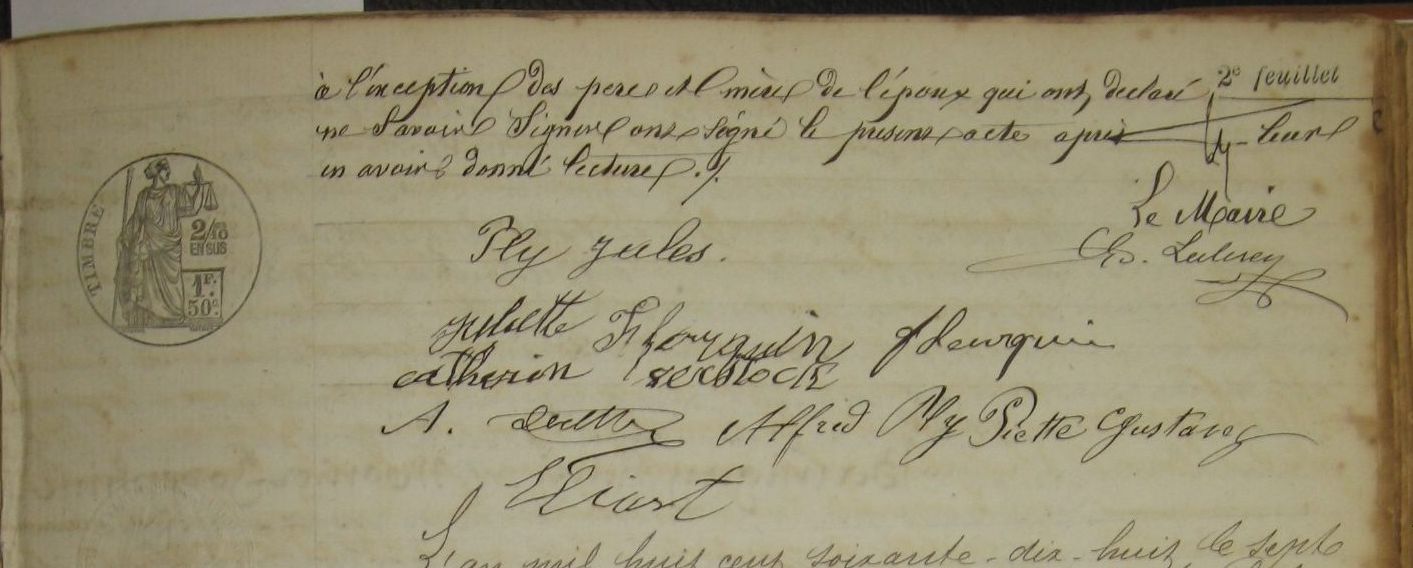 2e feuillet
à l'exception des pere et mère de l'époux qui ont, declaré
ne Savoir Signer ont signé le present acte après leur
en avoir donné lecture ./.
TIMBRE
2/10
EN SUS
1F.
50c.
Le Maire
Ply jules.
juliette Flourquin flourquin
catherin
A. Alfred Ply Piette Gustave
L'an mil huit cent soixante-dix-huit, le sept